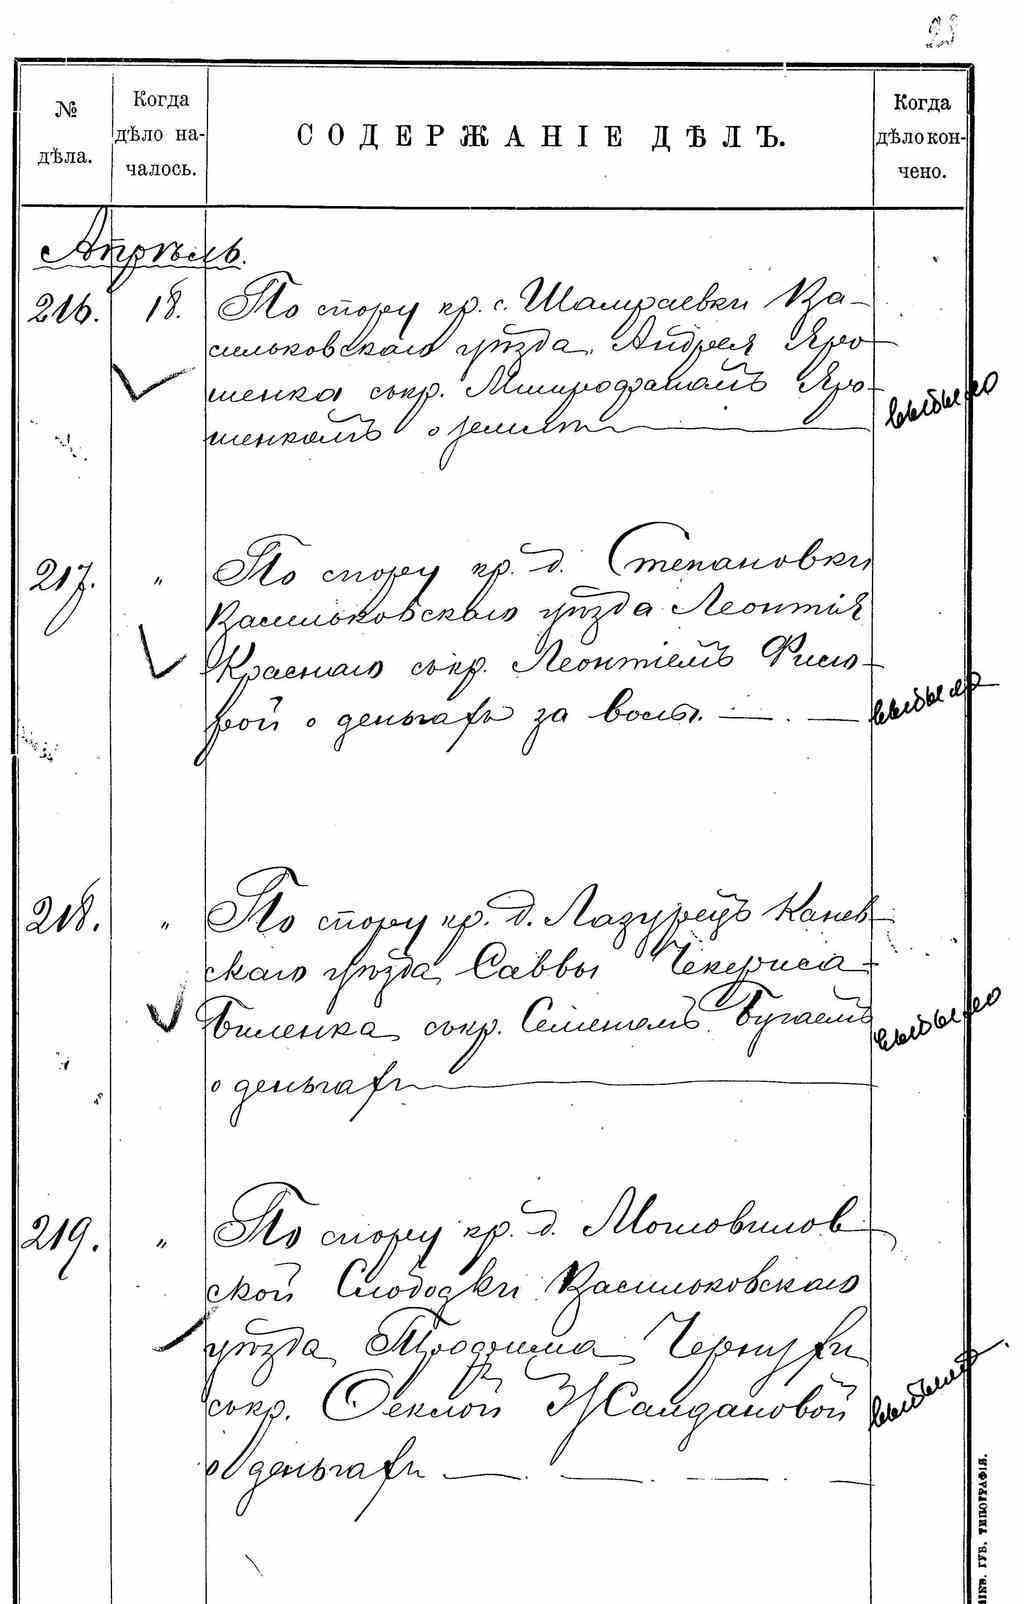 23
№ дѣла.
Когда дѣло на-
чалось.
СОДЕРЖАНІЕ ДѢЛЪ.
Когда дѣло кон-
чено.
Апрѣль.
216. 18. По спору кр. с. Шамраевки Ва-
сильковскаго уѣзда Андрея Яро-
шенка съ кр. Митрофаномъ Яро-
шенкомъ о землѣ
выбыло
217. " По спору кр. д. Степановки
Васильковскаго уѣзда Леонтія
Краснаго съ кр. Леонтіемъ
о деньгахъ за волы.
выбыло
218. " По спору кр. д. Лазурецъ Канев-
скаго уѣзда Саввы Чекериса-
Биленка съ кр. Семеномъ Бугаемъ
о деньгахъ
выбыло
219. " По спору кр. д. Мотовилов-
ской Слободки Васильковскаго
уѣзда Трофима Чернухи
съ кр. Ѳеклой Жалдановой
о деньгахъ
губ. типографія.